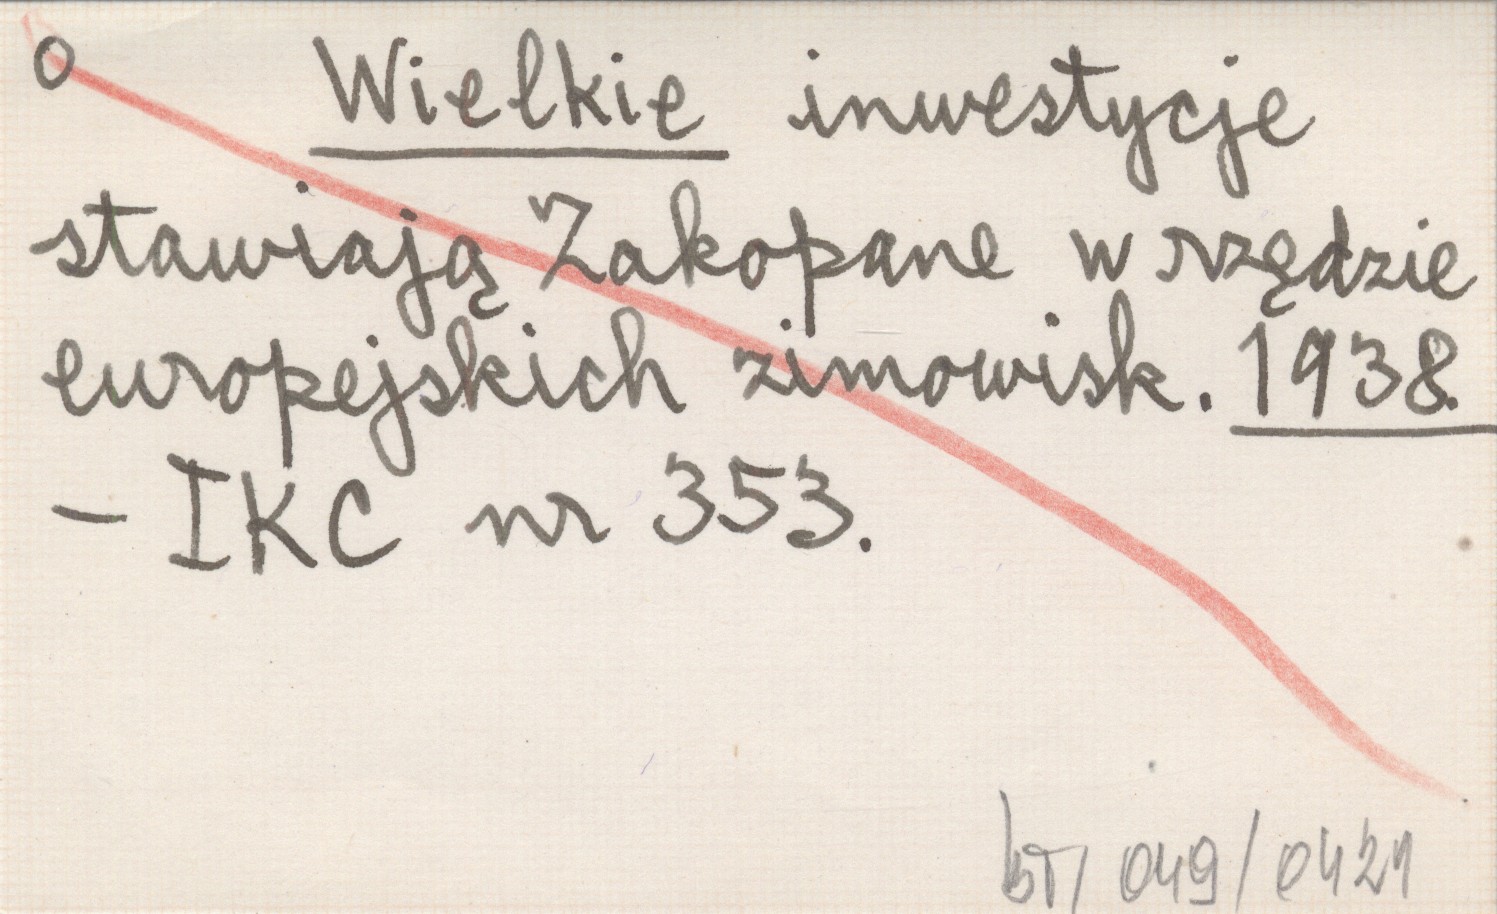 o Wielkie inwestycje
stawiają Zakopane w rzędzie
europejskich zimowisk. 1938.
– IKC nr 353.
049/0421